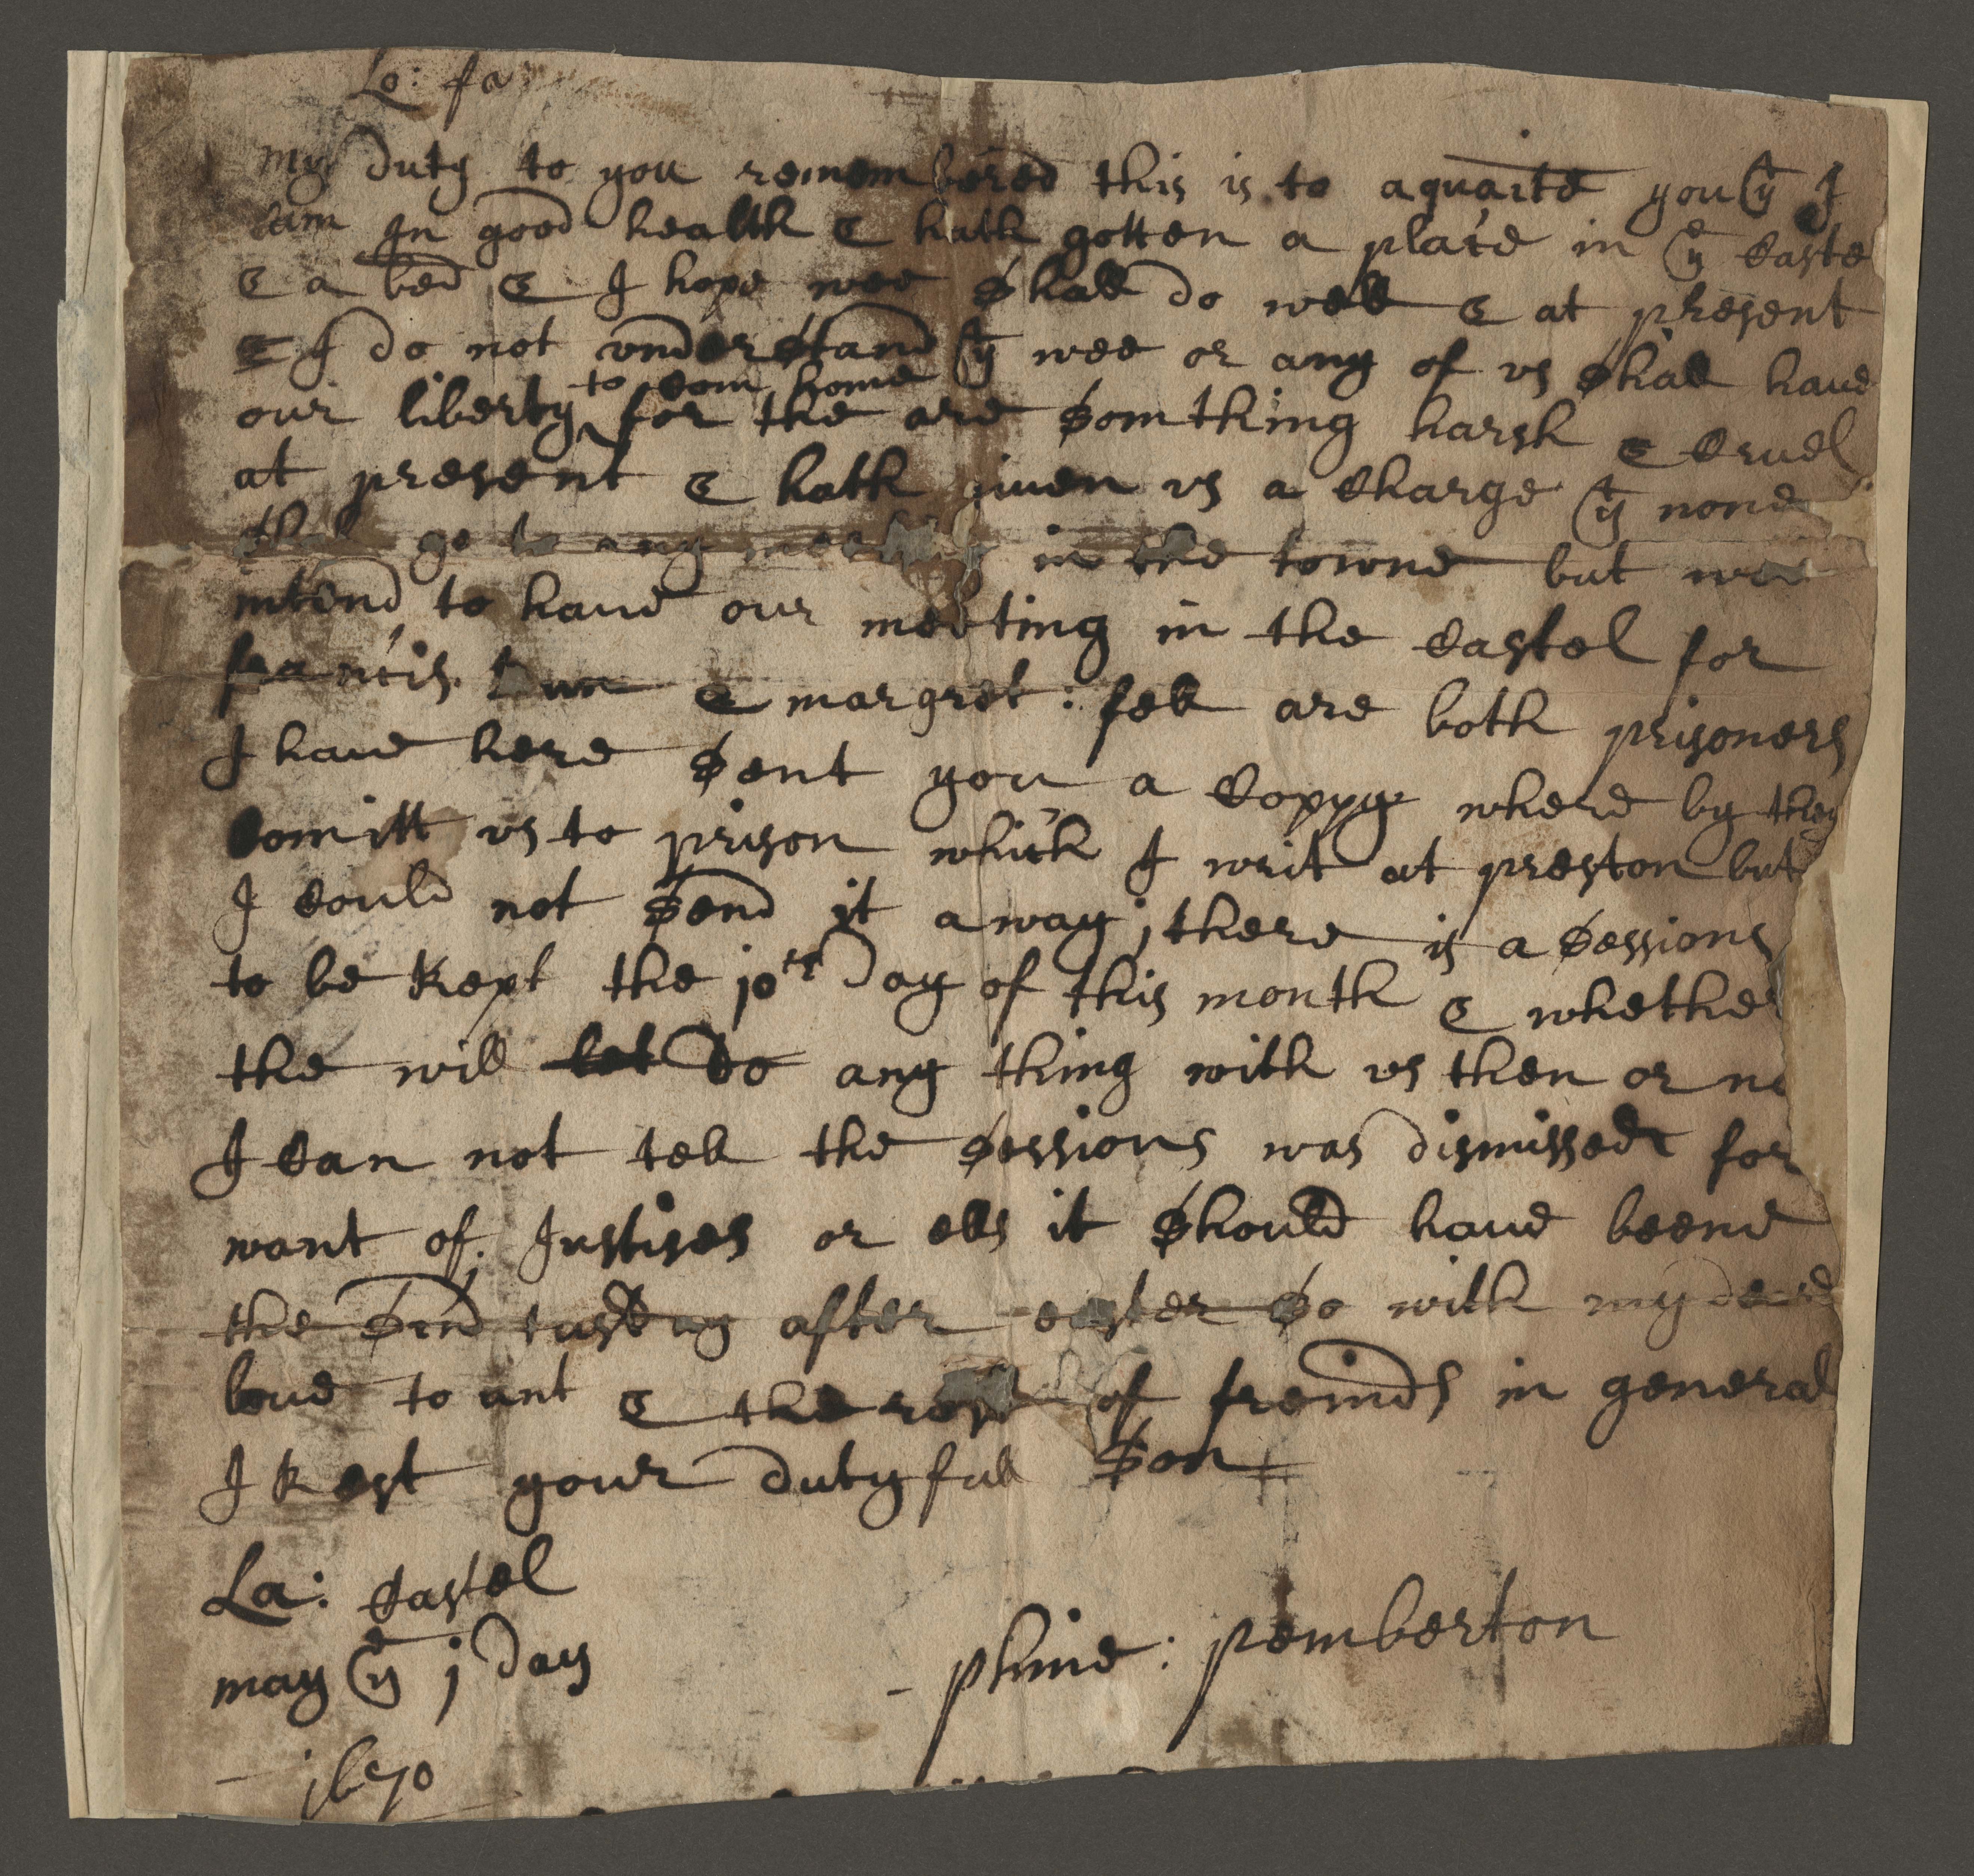 Lo: fa:
my duty to you remembered this is to aquaite you yt I
am In good health & hath gotten a place in ye caste
& a bed & I hope wee shall do well & at present
& I do not understand yt wee or any of us shall have
to com home
our liberty ^ for the are somthing harsh & cruel
at present & hath given us a charge yt none
shal go to any in the towne but wee
intend to have our meeting in the castel for
francis & margret: fell are both prisoners
I have here sent you a coppy where by they
comitt us to prison which I writ at preston but
I could not send it away; there is a sessions
to be kept the 10th day of this month & whether
the will let do any thing with us then or no
I can not tell the sessions was dismissed for
want of Justises or ells it should have beene
the tusday after easter so with my deare
love to ant & the rest of freinds in general
I Rest your dutyfull son
La: castel
may ye j day
- phine: pemberton
1670